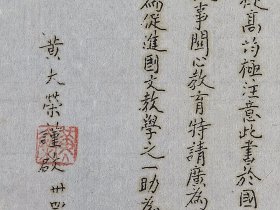 提高均極注意此書於國
事關心教育特請廣為
為促進國文教學之一助為
黃大榮謹啟
卅